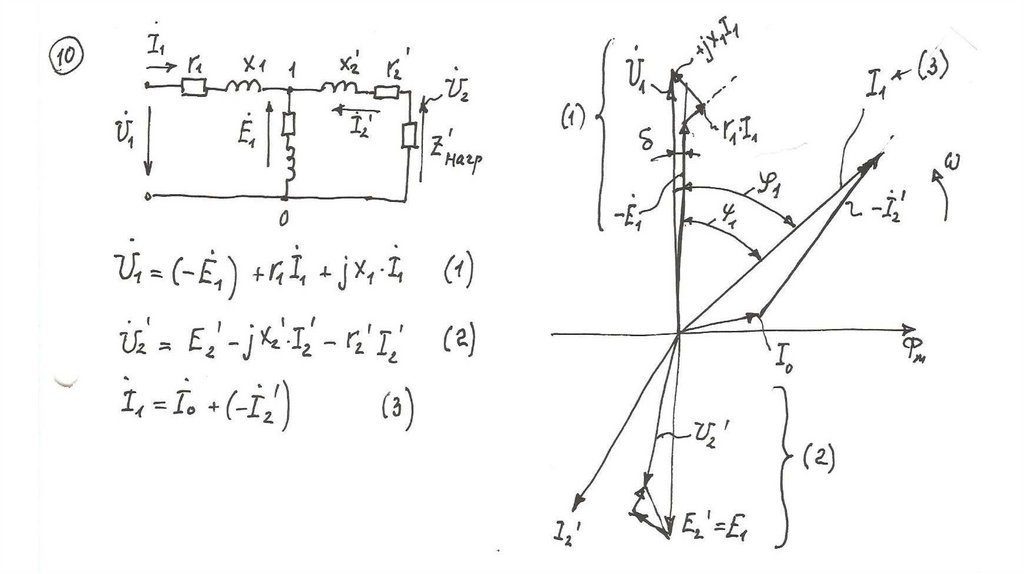 10
İ₁
r₁ x₁ 1 x₂' r₂'
U̇₁ Ė₁ İ₂' U̇₂
Z'нагр
0
U̇₁ = (-Ė₁) + r₁İ₁ + jx₁·İ₁ (1)
U̇₂' = E₂' - jx₂'·I₂' - r₂'I₂' (2)
İ₁ = İ₀ + (-İ₂') (3)
(1)
U̇₁ +jx₁I₁
r₁·I₁
I₁ (3)
δ
-Ė₁
φ₁
ψ₁
-İ₂'
ω
I₀
Φm
U₂'
(2)
I₂'
E₂' = E₁